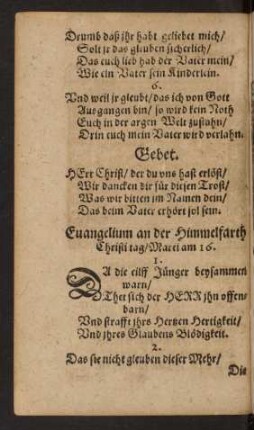 Drumb daß jhr habt geliebet mich/
Solt je das gleuben sicherlich/
Das euch lieb hab der Vater mein/
Wie ein Vater sein Kinderlein.
6.
Vnd weil jr gleubt/das ich von Gott
Ausgangen bin/ so wird kein Noth
Euch in der argen Welt zustahn/
Drin euch mein Vater wird verlahn.
Gebet.
HErr Christ/ der du vns hast erlöst/
Wir dancken dir für diesen Trost/
Was wir bitten im Namen dein/
Das beim Vater erhört sol sein.
Euangelium an der Himmelfarth
Christi tag/Marci am 16.
1.
DA die eilff Jünger beysammen
warn/
Thet sich der HERR jhn offen-
barn/
Vnd strafft jhrs Hertzen Hertigkeit/
Vnd jhres Glaubens Blödigkeit.
2.
Das sie nicht gleuben dieser Mehr/
Die